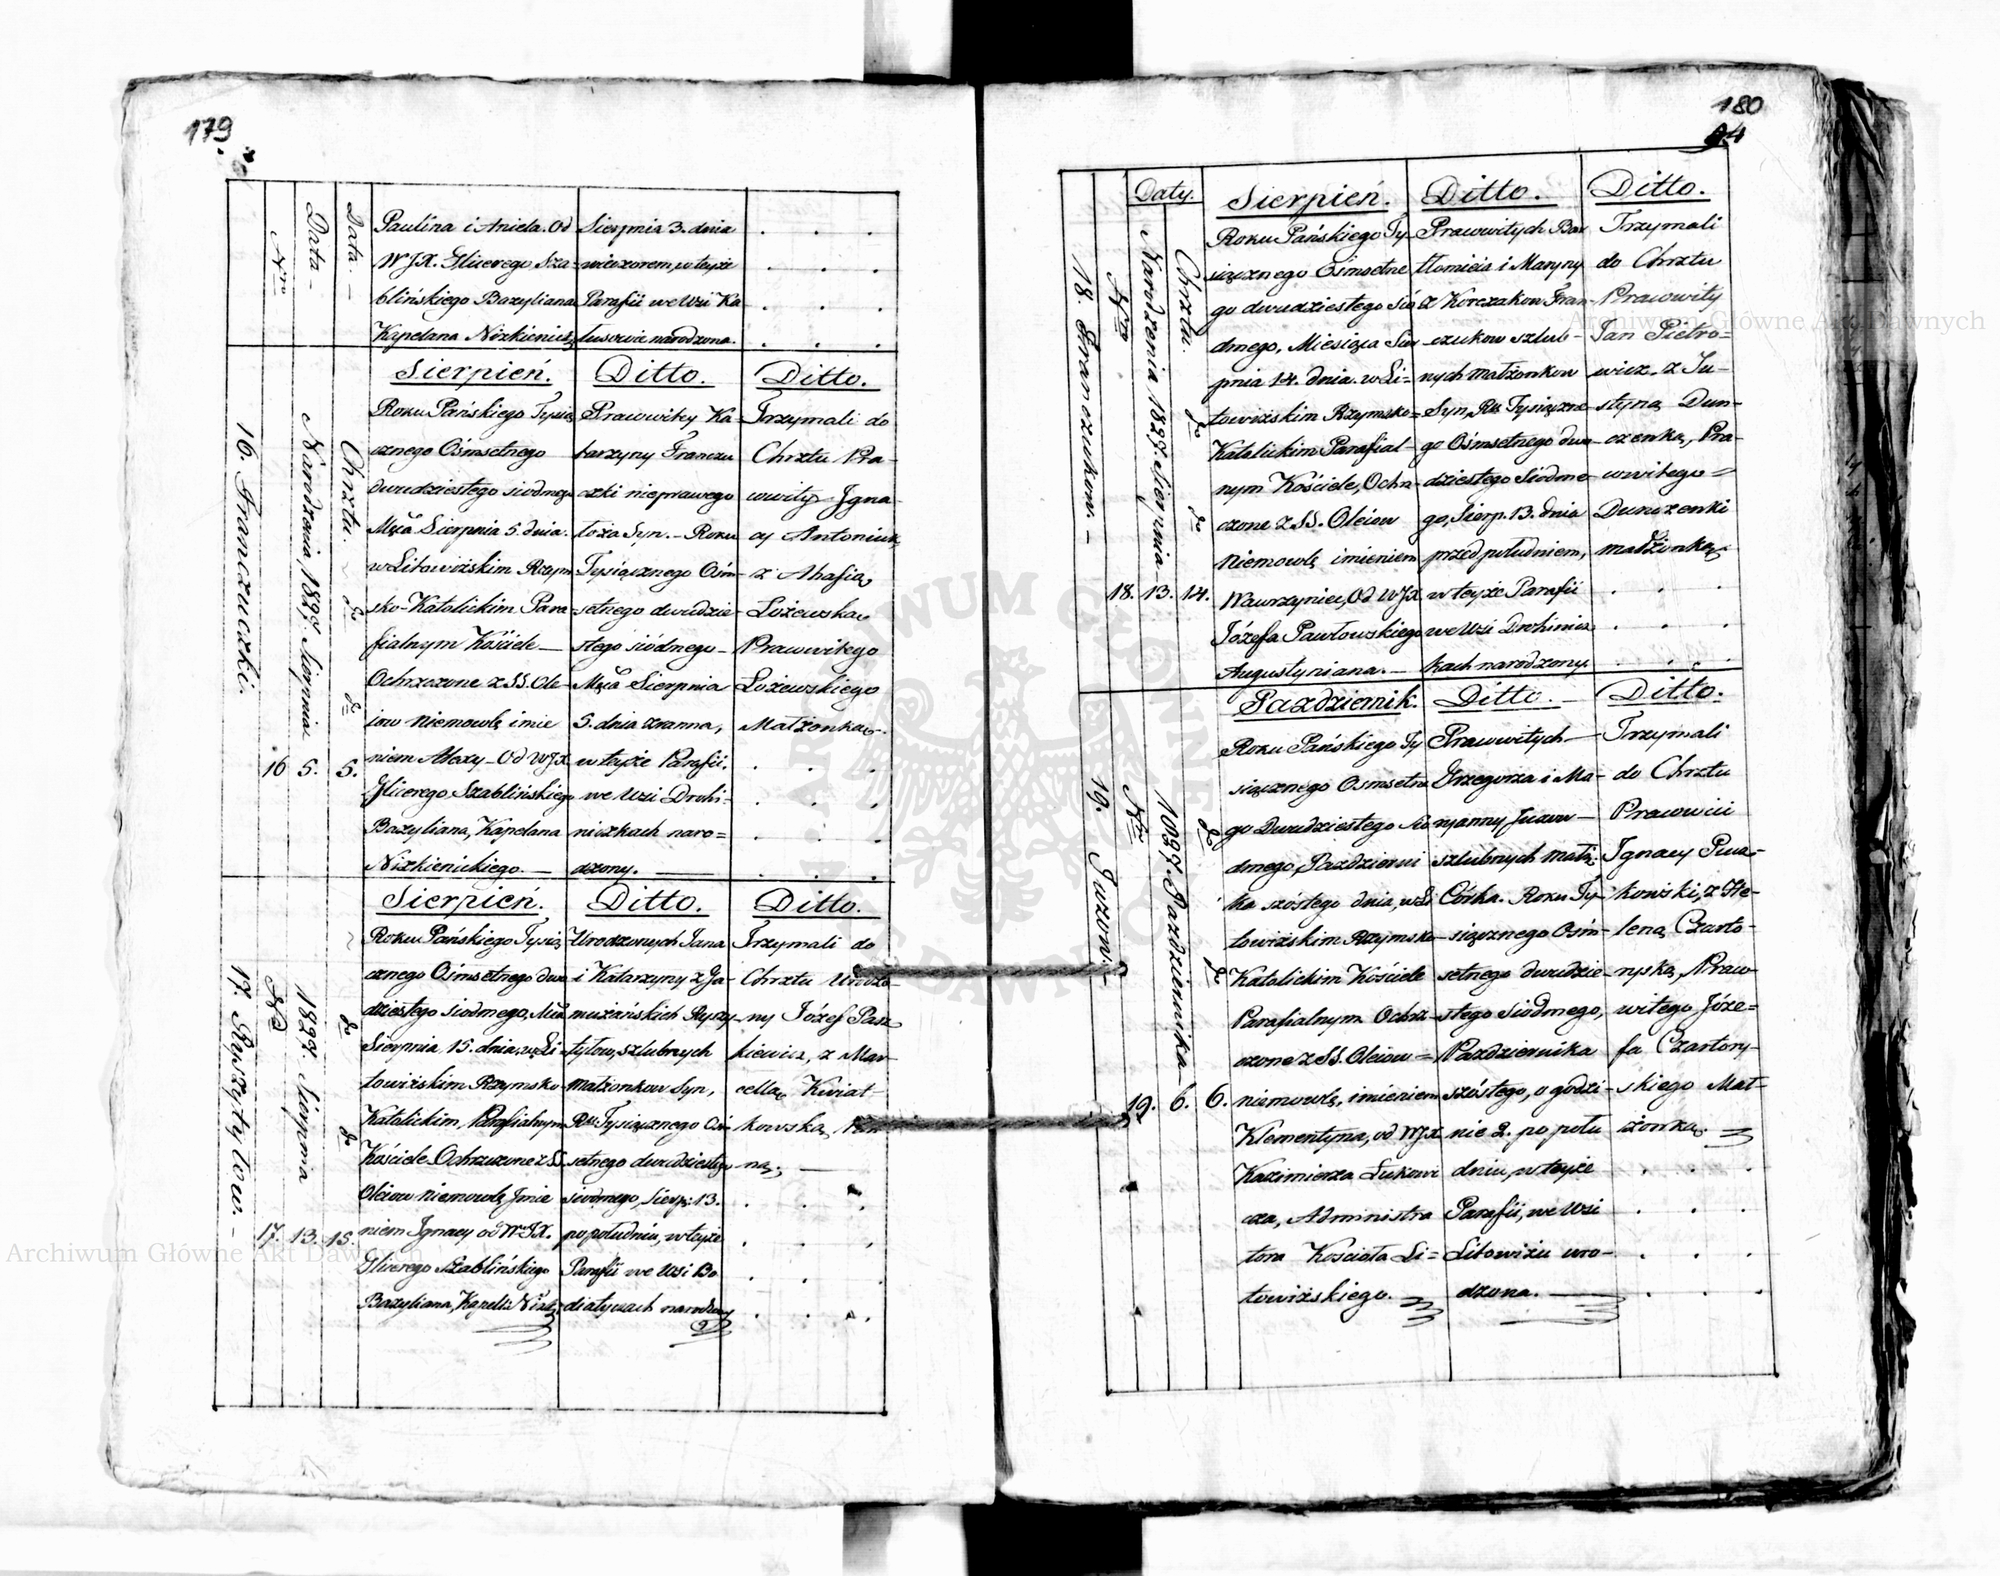 179
Nro
Data
Data
Paulina i Aniela. Od
WJX. Glicerego Sza-
blińskiego Bazyliana
Kapelana Nizkienick.
Sierpnia 3. dnia
wieczorem, w teyże
Parafii we Wsi Ka
lusowie narodzona.
16. Franczuczki.
Narodzenia 1827. Sierpnia
Chrztu.
16 5. 5.
Sierpień.
Roku Pańskiego Tysią
cznego Ośmsetnego
dwudziestego siodmego
Mca Sierpnia 5. dnia.
w Litowiżskim Rzym
sko-Katolickim Para
fialnym Kościele —
Ochrzczone z SS. Ole
iow Niemowlę imie
niem Alexy - Od WJX
Glicerego Szablińskiego
Bazyliana, Kapelana
Nizkienickiego. —
Ditto.
Prawowitey Ka-
tarzyny Franczu
czki nieprawego
łoża Syn. - Roku
Tysiącznego Ośm-
setnego dwudzie-
stego siódnego -
Mca Sierpnia
5. dnia zranna,
w teyże Parafii.
we Wsi Drohi-
niczkach naro=
dzony. —
Ditto.
Trzymali do
Chrztu Pra-
wowity Igna-
cy Antoniuk
z Ahafią
Łożewską
Prawowitego
Łożewskiego
Małżonką.
17. Ryszytylow. -
Nro
1827. Sierpnia
17. 13. 15.
Sierpień.
Roku Pańskiego Tysią
cznego Ośmsetnego dwu
dziestego siodmego, Mca
Sierpnia 15. dnia, w Li-
towiżskim Rzymsko-
Katolickim, Parafialnym
Kościele Ochrzczone z SS.
Oleiow niemowlę Jmie
niem Ignacy od WJX.
Glicerego Szablińskiego
Bazyliana, Kapell: Nizk:
Ditto.
Urodzonych Jana
i Katarzyny z Ja-
mużańskich Ryszy
tylow, szlubnych
Małżonkow Syn,
Ru Tysiącznego Oś
setnego dwudziestego
siodmego, Sierp: 13.
popołudniu, w teyże
Parafii we Wsi Bo
diatyczach narodzony
Ditto.
Trzymali do
Chrztu Urodzo-
ny Józef Pasz
kiewicz, z Mar-
cellą Kwiat-
kowską, Pan
ną. —
180
94
Daty.
Nro
Narodzenia 1827. Sierpnia
Chrztu.
18. Franczukow. -
18. 13. 14.
Sierpień.
Roku Pańskiego Ty-
siącznego Ośmsetne
go dwudziestego sió
dmego, Miesiąca Sier
pnia 14. dnia. w Li=
towiżskim Rzymsko=
Katolickim Parafial-
nym Kościele, Ochr-
czone z SS. Oleiow
Niemowlę imieniem
Wawrzyniec, Od WJX
Józefa Pawłowskiego
Augustyniana. —
Ditto.
Prawowitych Bar
tłomieia i Maryny
z Korczakow Fran-
czukow szlub-
nych Małżonkow
Syn, Ru Tysiączne
go Ośmsetnego dwu-
dziestego Siódme
go, Sierp. 13. dnia
przed południem,
w teyże Parafii
we Wsi Drohinicz
kach narodzony.
Ditto.
Trzymali
do Chrztu
Prawowity
Jan Pietro=
wicz. z Ju-
styną Dun-
czenką, Pra-
wowitego =
Dunczenki
małżonką
19. Juzowi. -
Nro
1827. Pazdziernika
19. 6. 6.
Pazdziernik.
Roku Pańskiego Ty
siącznego Osmsetne
go Dwudziestego sió
dmego, Pazdzierni
ka szóstego dnia, w Li
towiżskim Rzymsko
Katolickim Kościele
Parafialnym Ochrz-
czone z SS. Oleiow =
niemowlę, imieniem
Klementyna, od WJX
Kazimierza Łukowi
cza, Administra
tora Kościoła Li=
towiżskiego.
Ditto.
Prawowitych —
Grzegorza i Ma-
ryanny Juzow -
szlubnych małż:
Córka. Roku Ty-
siącznego Ośm-
setnego dwudzie-
stego Siodmego,
Pazdziernika
szóstego, o godzi-
nie 2. po połu
dniu, w teyże
Parafii, we Wsi
Litowiżu uro-
dzona. —
Ditto.
Trzymali
do Chrztu
Prawowici
Ignacy Pua-
kowski, z He-
leną Czarto-
ryską, Praw-
witego Józe=
fa Czartory-
skiego Mał-
żonką.
Archiwum Główne Akt Dawnych
Archiwum Główne Akt Dawnych
ARCHIWUM GŁÓWNE AKT DAWNYCH